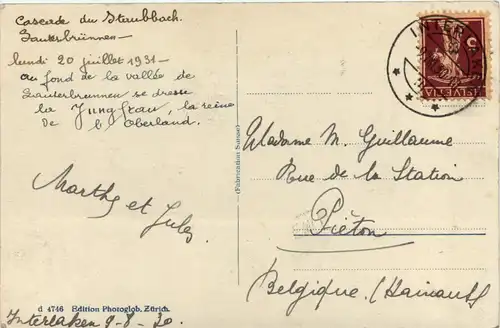 Cascade du Staubbach.
Lauterbrünnen —
lundi 20 juillet 1931 —
au fond de la vallée de
Lauterbrunnen se dresse
la Jungfrau, la reine
de l'Oberland.
Marthe et Jules
Interlaken 9-8-30.
d 4746 Edition Photoglob, Zürich.
(Fabrication Suisse)
INTER
HELVETIA
Madame M. Guillaume
Rue de la Station
Piéton
Belgique (Hainaut)